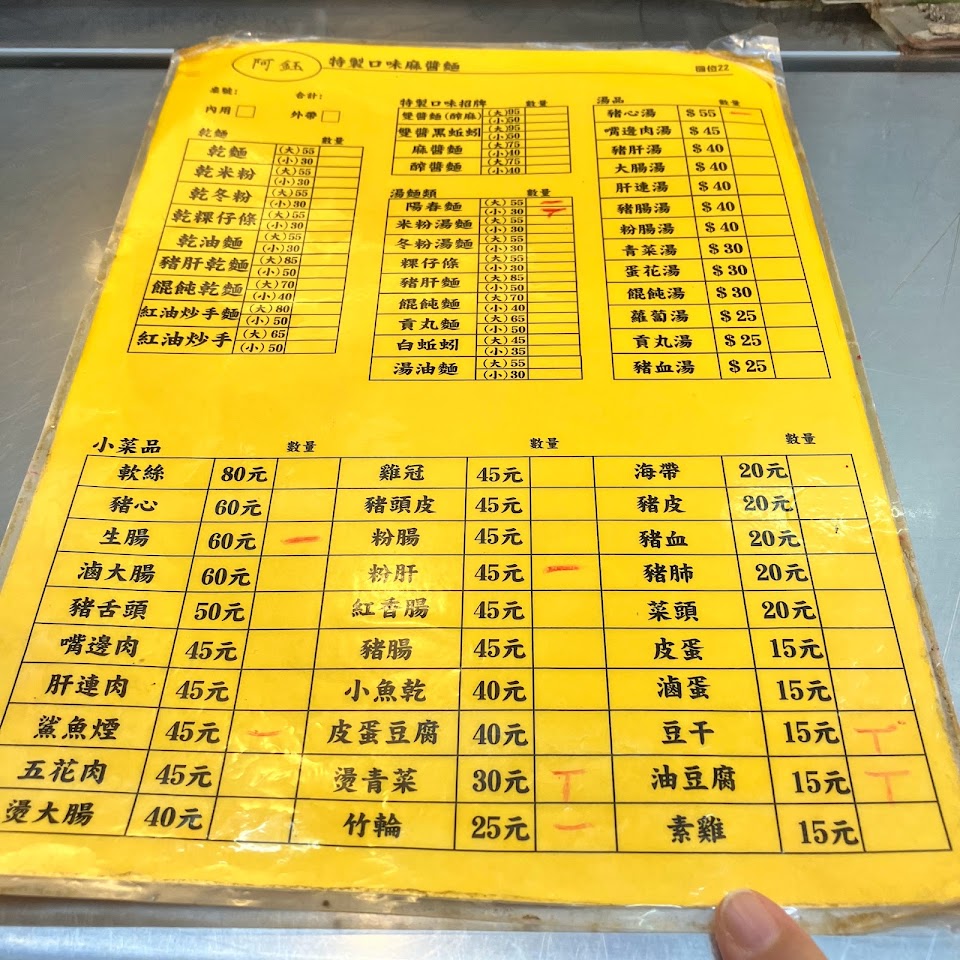 阿鈺 特製口味麻醬麵 攤位22
桌號： 合計：
內用 外帶
乾麵 數量
乾麵 (大)55 (小)30
乾米粉 (大)55 (小)30
乾冬粉 (大)55 (小)30
乾粿仔條 (大)55 (小)30
乾油麵 (大)55 (小)30
豬肝乾麵 (大)85 (小)50
餛飩乾麵 (大)70 (小)40
紅油炒手麵 (大)80 (小)50
紅油炒手 (大)65 (小)50
特製口味招牌 數量
雙醬麵(醡麻) (大)95 (小)50
雙醬黑蚯蚓 (大)95 (小)50
麻醬麵 (大)75 (小)40
醡醬麵 (大)75 (小)40
湯麵類 數量
陽春麵 (大)55 (小)30
米粉湯麵 (大)55 (小)30
冬粉湯麵 (大)55 (小)30
粿仔條 (大)55 (小)30
豬肝麵 (大)85 (小)50
餛飩麵 (大)70 (小)40
貢丸麵 (大)65 (小)50
白蚯蚓 (大)45 (小)35
湯油麵 (大)55 (小)30
湯品 數量
豬心湯 $55 一
嘴邊肉湯 $45
豬肝湯 $40
大腸湯 $40
肝連湯 $40
豬腸湯 $40
粉腸湯 $40
青菜湯 $30
蛋花湯 $30
餛飩湯 $30
蘿蔔湯 $25
貢丸湯 $25
豬血湯 $25
小菜品 數量 數量 數量
軟絲 80元 雞冠 45元 海帶 20元
豬心 60元 豬頭皮 45元 豬皮 20元
生腸 60元 一 粉腸 45元 豬血 20元
滷大腸 60元 粉肝 45元 一 豬肺 20元
豬舌頭 50元 紅香腸 45元 菜頭 20元
嘴邊肉 45元 豬腸 45元 皮蛋 15元
肝連肉 45元 小魚乾 40元 滷蛋 15元
鯊魚煙 45元 一 皮蛋豆腐 40元 豆干 15元 丅
五花肉 45元 燙青菜 30元 丅 油豆腐 15元 丅
燙大腸 40元 竹輪 25元 一 素雞 15元